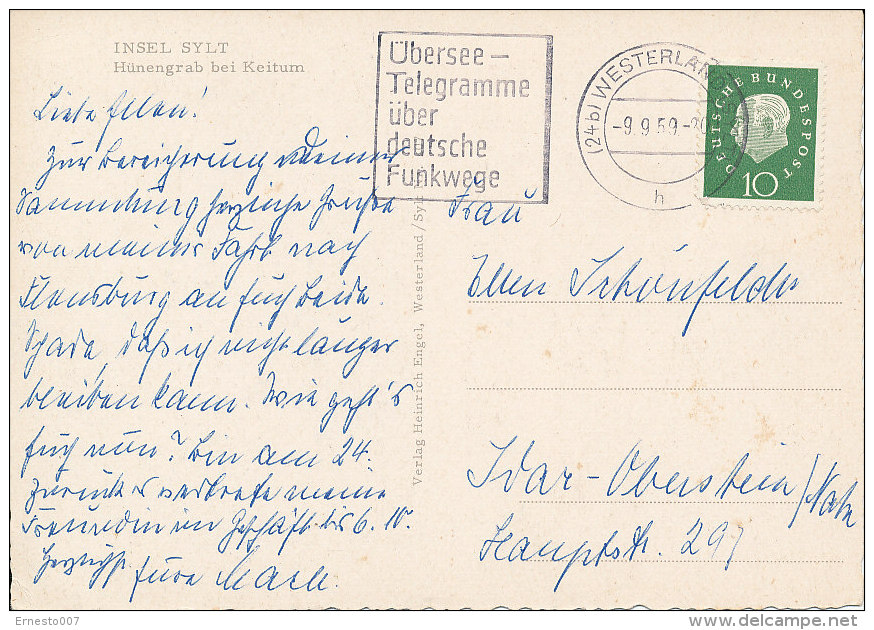 INSEL SYLT
Hünengrab bei Keitum
Liebe Ellen!
Zur Bereicherung Deiner
Sammlung herzliche Grüße
von meiner Fahrt nach
Flensburg an Euch beide.
Schade, daß ich nicht länger
bleiben kann. Wie geht's
Euch nun? Bin am 24.
zurück u. vertrete meine
Freundin im Geschäft bis 6. 10.
Herzlichst Eure
Verlag Heinrich Engel, Westerland/Sylt
Übersee-
Telegramme
über
deutsche
Funkwege
(24b) WESTERLAND
-9.9.59-20
h
DEUTSCHE BUNDESPOST
10
Frau
Ellen Schönfelder
Idar-Oberstein/Nahe
Hauptstr. 297
Ernesto007
www.delcampe.net